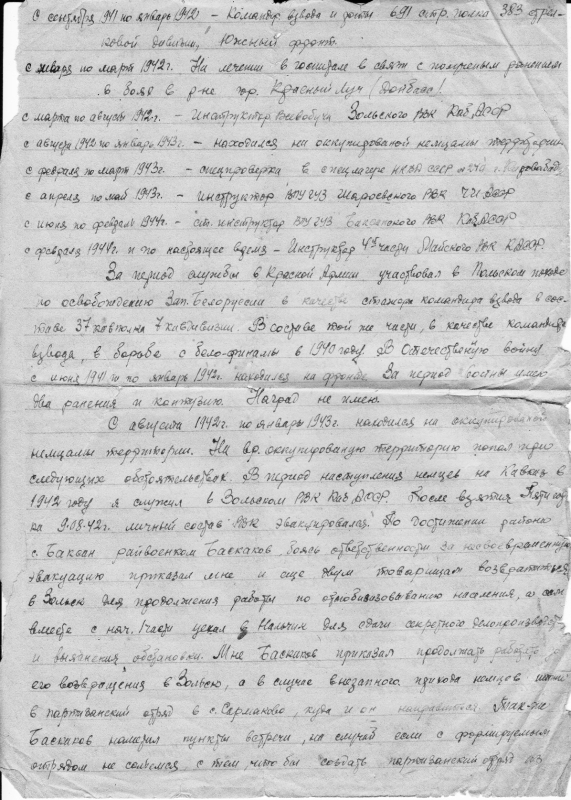 С сентября 1941 по январь 1942г – Командир взвода и роты 691 стр. полка 383 стрел-
ковой дивизии, Южный фронт.
с января по март 1942г. На лечении в госпитале в связи с полученым ранением
в боях в р-не гор. Красный Луч (Донбасс)
с марта по август 1942г. – Инструктор Всевобуча Зольского РВК Каб.АССР
с августа 1942 по январь 1943г. – находился на оккупированой немцами территории
с февраля по март 1943г. – спецпроверка в спецлагере НКВД СССР г.
с апреля по май 1943г. – инструктор ВПУ ЧУЗ РВК ЧИАССР
с июня по февраль 1944г. – ст. инструктор ВПУ ЧУЗ Баксанского РВК КАССР
с февраля 1944г и по настоящее время – Инструктор 4й части Майского РВК КАССР.
За период службы в Красной Армии участвовал в Польском походе
по освобождению Зап. Белоруссии в качестве стажора командира взвода в сос-
таве 37 кавполка 7 кавдивизии. В составе той же части, в качестве командира
взвода, в борьбе с бело-финнами в 1940 году. В Отечественую войну
с июня 1941 по январь 1942г. находился на фронте. За период войны имею
два ранения и контузию. Наград не имею.
С августа 1942г. по январь 1943г. находился на оккупированой
немцами территории. На вр. оккупированую территорию попал при
следующих обстоятельствах. В период наступления немцев на Кавказ в
1942 году я служил в Зольском РВК Каб.АССР. После взятия Пятигорс
ка 9.08.42г. личный состав РВК эвакуировался. По достижении района
с. Баксан райвоенком Баскаков боясь ответственности за несвоевременную
эвакуацию приказал мне и еще двум товарищам возвратиться
в Зольск для продолжения работы по отмобилизовыванию населения, а сам
вместе с нач. 1 части уехал в Нальчик для сдачи секретного делопроизводст-
и выяснения обстановки. Мне Баскаков приказал продолжать работать до
его возвращения в Зольск, а в случае внезапного прихода немцев итти
в партизанский отряд в с. Сармаково, куда и он направится. Так-же
Баскаков наметил пункты встречи, на случай если с формируемым
отрядом не сольемся с тем чтобы создать партизанский отряд